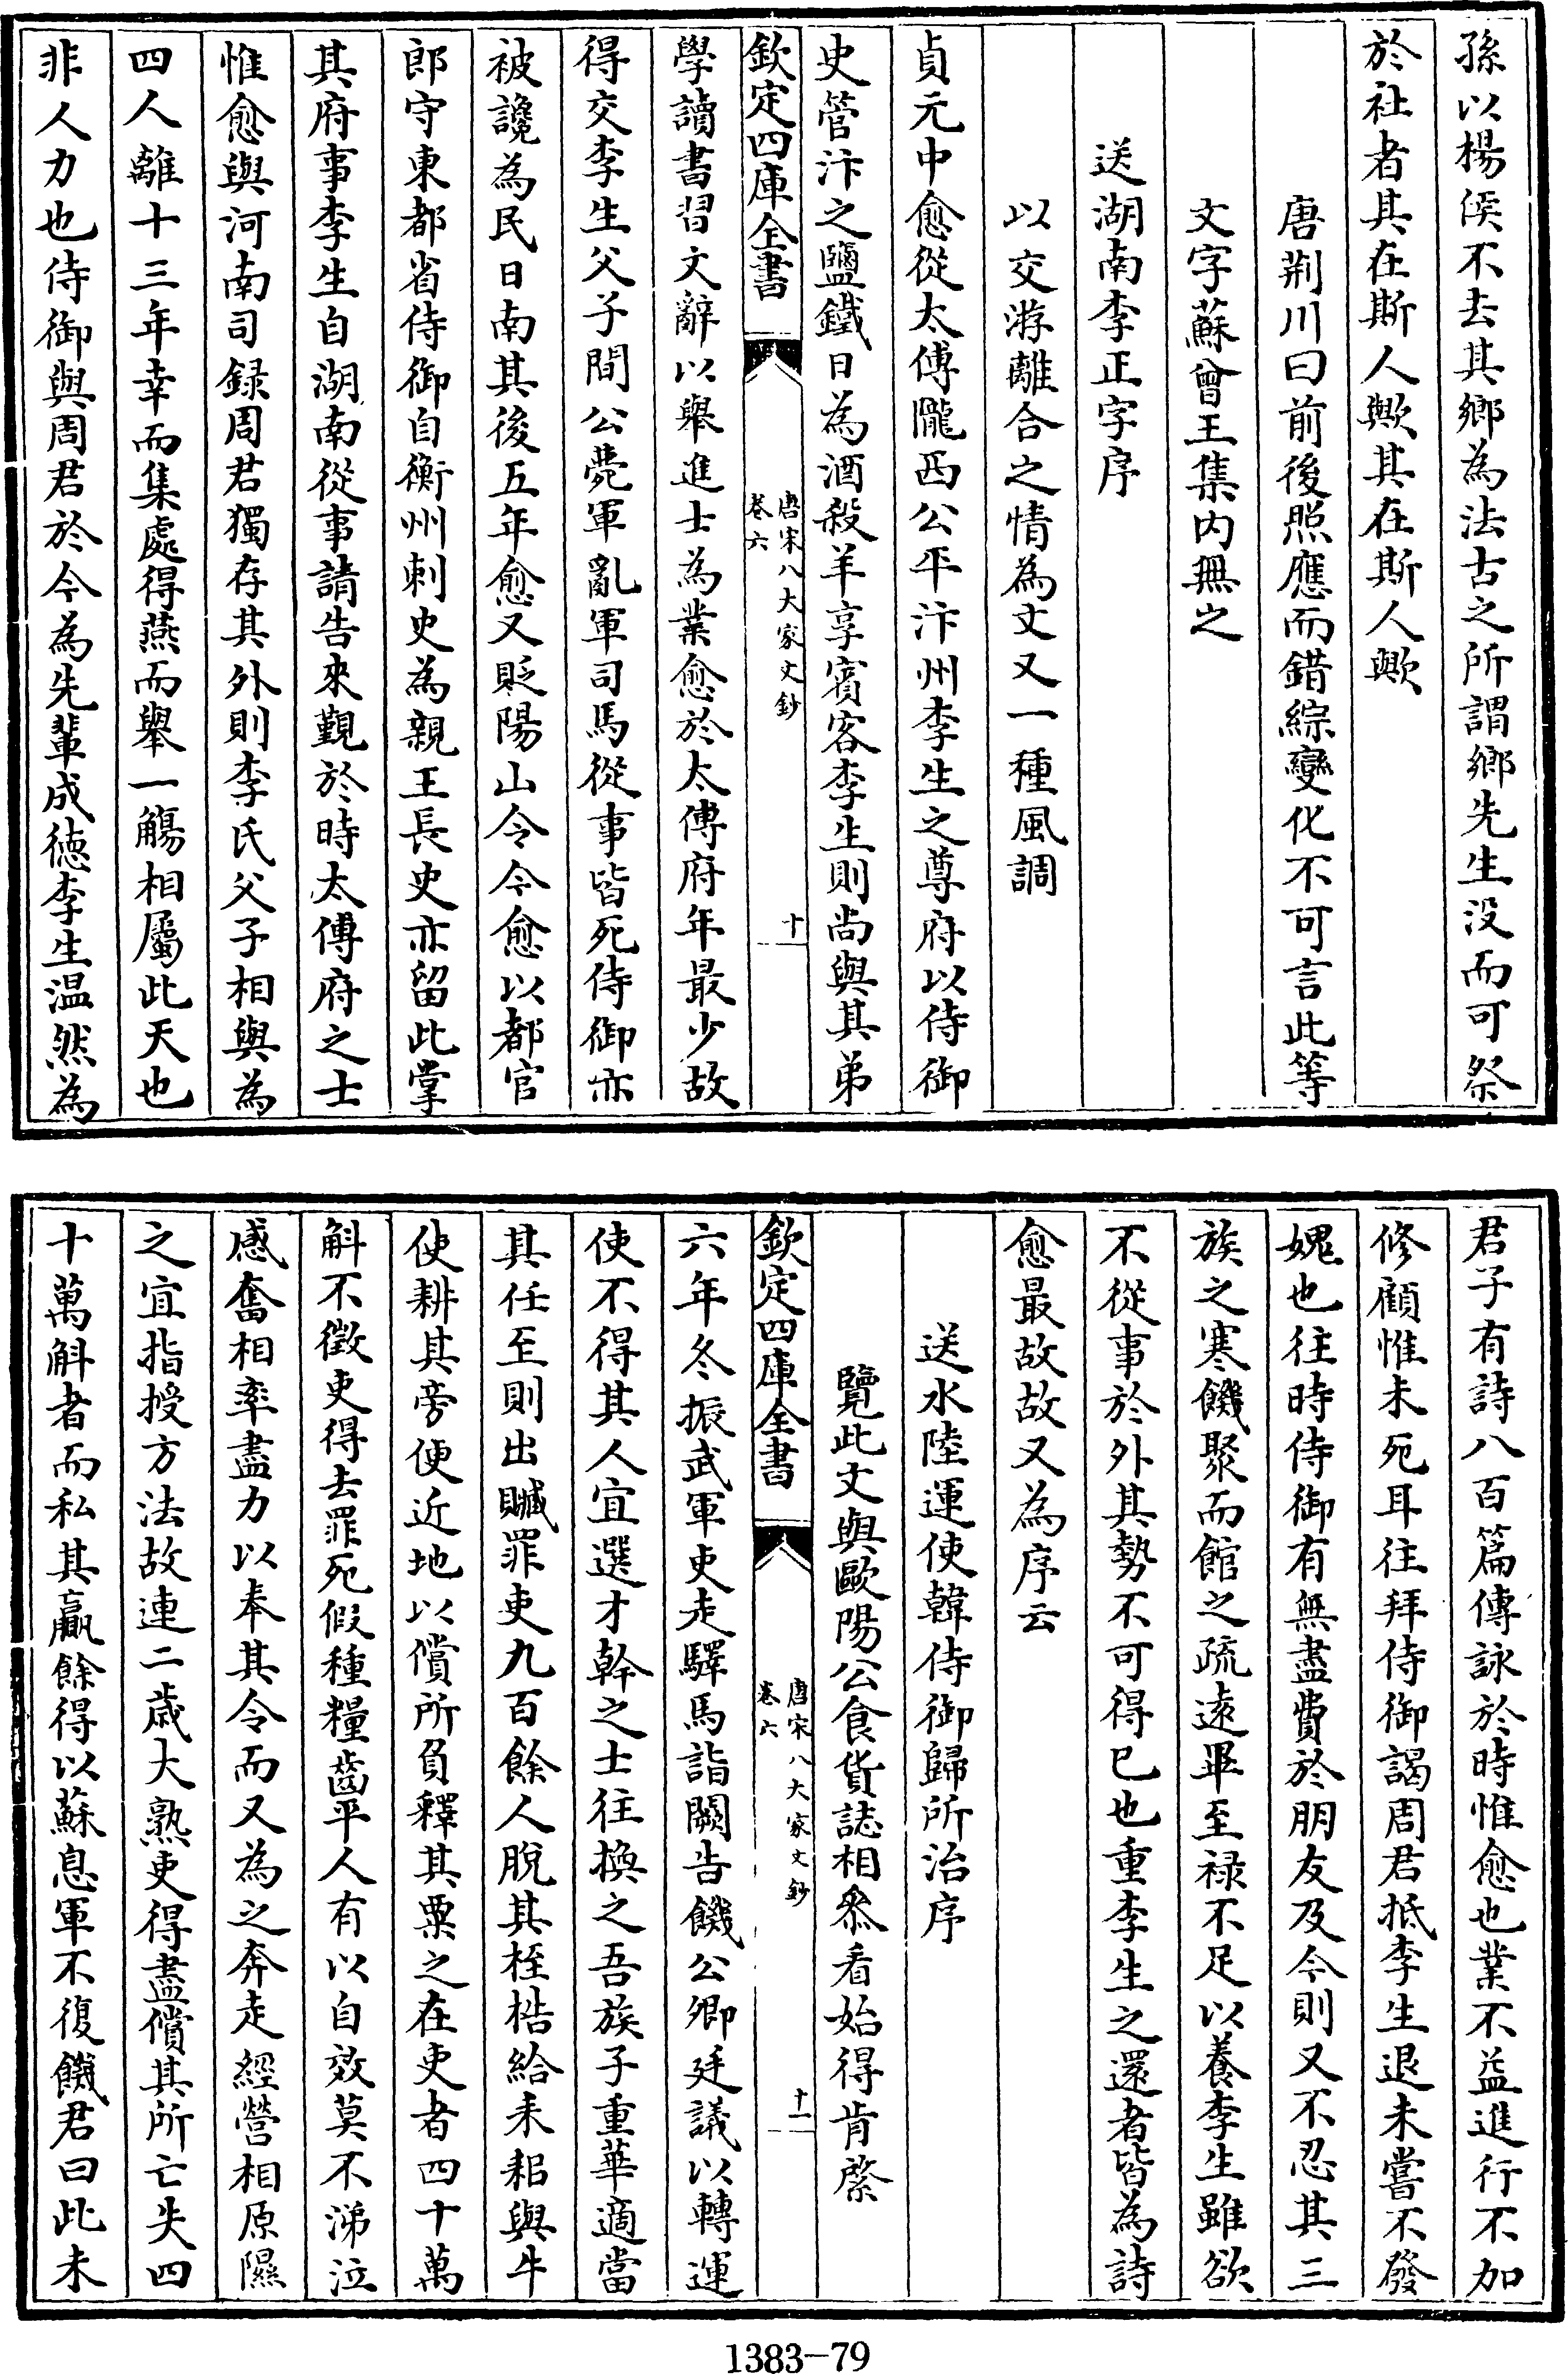 孫以楊侯不去其鄉為法古之所謂鄉先生没而可祭
於社者其在斯人歟其在斯人歟
唐荆川曰前後照應而錯綜變化不可言此等
文字蘇曾王集内無之
送湖南李正字序
以交游離合之情為文又一種風調
貞元中愈從太傅隴西公平汴州李生之尊府以侍御
史管汴之鹽鐵日為酒殺羊享賓客李生則尚與其弟
欽定四庫全書
唐宋八大家文鈔
卷六
十
學讀書習文辭以舉進士為業愈於太傅府年最少故
得交李生父子間公薨軍亂軍司馬從事皆死侍御亦
被讒為民日南其後五年愈又貶陽山令今愈以都官
郎守東都省侍御自衡州刺史為親王長史亦留此掌
其府事李生自湖南從事請告來覲於時太傅府之士
惟愈與河南司録周君獨存其外則李氏父子相與為
四人離十三年幸而集處得燕而舉一觴相屬此天也
非人力也侍御與周君於今為先輩成徳李生温然為
君子有詩八百篇傳詠於時惟愈也業不益進行不加
修顧惟未死耳往拜侍御謁周君抵李生退未嘗不發
媿也往時侍御有無盡費於朋友及今則又不忍其三
族之寒饑聚而館之疏逺畢至禄不足以養李生雖欲
不從事於外其勢不可得已也重李生之還者皆為詩
愈最故故又為序云
送水陸運使韓侍御歸所治序
覽此文與歐陽公食貨誌相叅看始得肯綮
欽定四庫全書
唐宋八大家文鈔
卷六
十一
六年冬振武軍吏走驛馬詣闕告饑公卿廷議以轉運
使不得其人宜選才幹之士往換之吾族子重華適當
其任至則出贓罪吏九百餘人脫其桎梏給耒耜與牛
使耕其旁便近地以償所負釋其粟之在吏者四十萬
斛不徴吏得去罪死假種糧齒平人有以自效莫不涕泣
感奮相率盡力以奉其令而又為之奔走經營相原隰
之宜指授方法故連二歲大熟吏得盡償其所亡失四
十萬斛者而私其贏餘得以蘇息軍不復饑君曰此未
1383-79